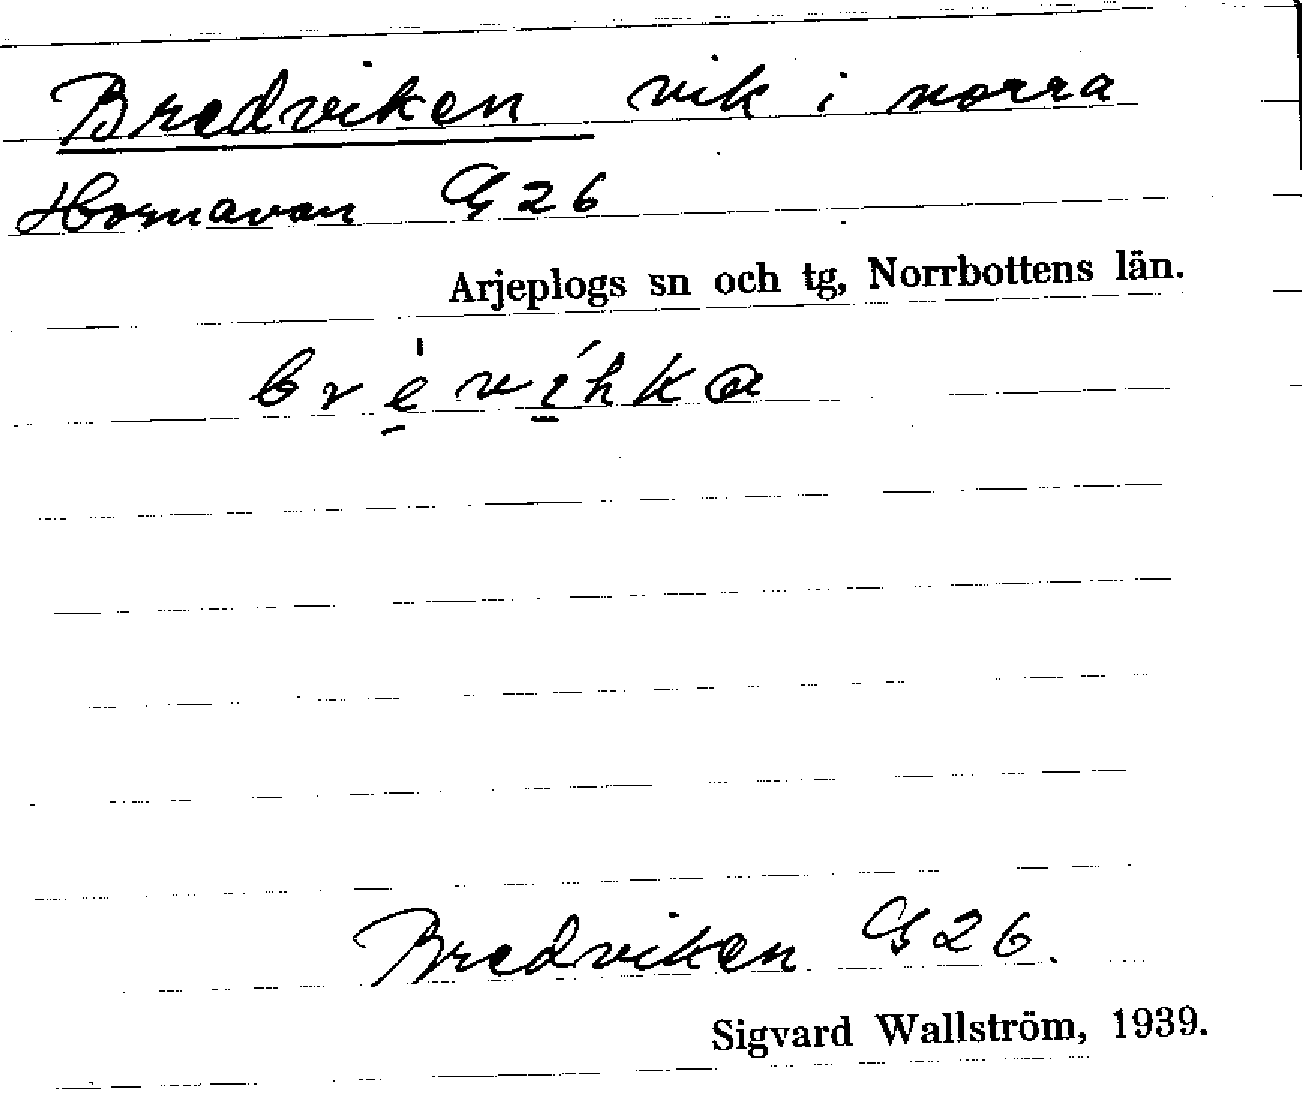 Bredviken vik i norra
Hornavan G 26
Arjeplogs sn och tg, Norrbottens län.
brèvíhka
Bredviken G 26.
Sigvard Wallström, 1939.